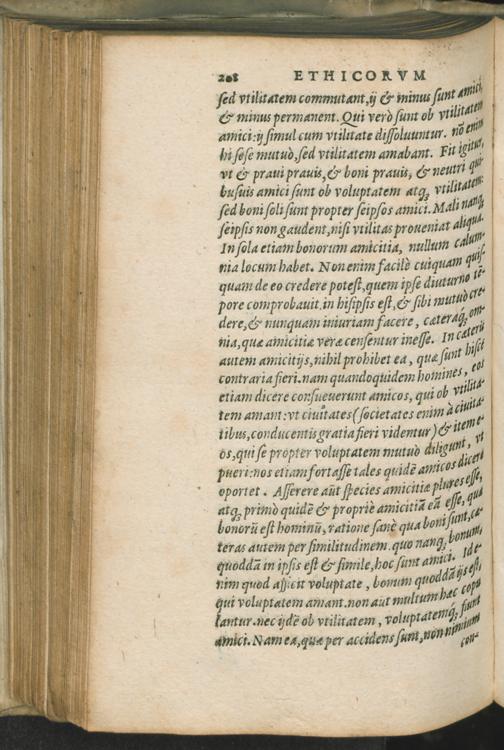 208 ETHICORVM
sed vtilitatem commutant, ij & minus sunt amici,
& minus permanent. Qui verò sunt ob vtilitatem
amici: ij simul cum vtilitate dissoluuntur. nō enim
hi sese mutuò, sed vtilitatem amabant. Fit igitur,
vt & praui prauis, & boni prauis, & neutri qui-
busuis amici sint ob voluptatem atq; vtilitatem:
sed boni soli sunt propter seipsos amici. Mali nanq;
seipsis non gaudent, nisi vtilitas proueniat aliqua.
In sola etiam bonorum amicitia, nullum calum-
nia locum habet. Non enim facilè cuiquam quis-
quam de eo credere potest, quem ipse diuturno tē-
pore comprobauit. in hisipsis est, & sibi mutuò cre-
dere, & nunquam iniuriam facere, cæteraq; om-
nia, quæ amicitiæ veræ censentur inesse. In cæteris
autem amicitijs, nihil prohibet ea, quæ sunt hisce
contraria fieri. nam quandoquidem homines, eos
etiam dicere consueuerunt amicos, qui ob vtilita-
tem amant: vt ciuitates (societates enim à ciuita-
tibus, conducentis gratia fieri videntur) & item e-
os, qui se propter voluptatem mutuò diligunt, vt
pueri: nos etiam fortassè tales quidē amicos dicere
oportet. Asserere aūt species amicitiæ plures esse,
atq; primò quidē & propriè amicitiā eā esse, quæ
bonorū est hominū, ratione sanè qua boni sunt, cæ-
teras autem per similitudinem. quo nanq; bonum,
quoddā in ipsis est & simile, hoc sunt amici. Idē-
nim quod afficit voluptate, bonum quoddā ijs est,
qui voluptatem amant. non aūt multum hæc copu
lantur. nec ijdē ob vtilitatem, voluptatemq; fiunt
amici. Nam ea, quæ per accidens sunt, non nimium
con-